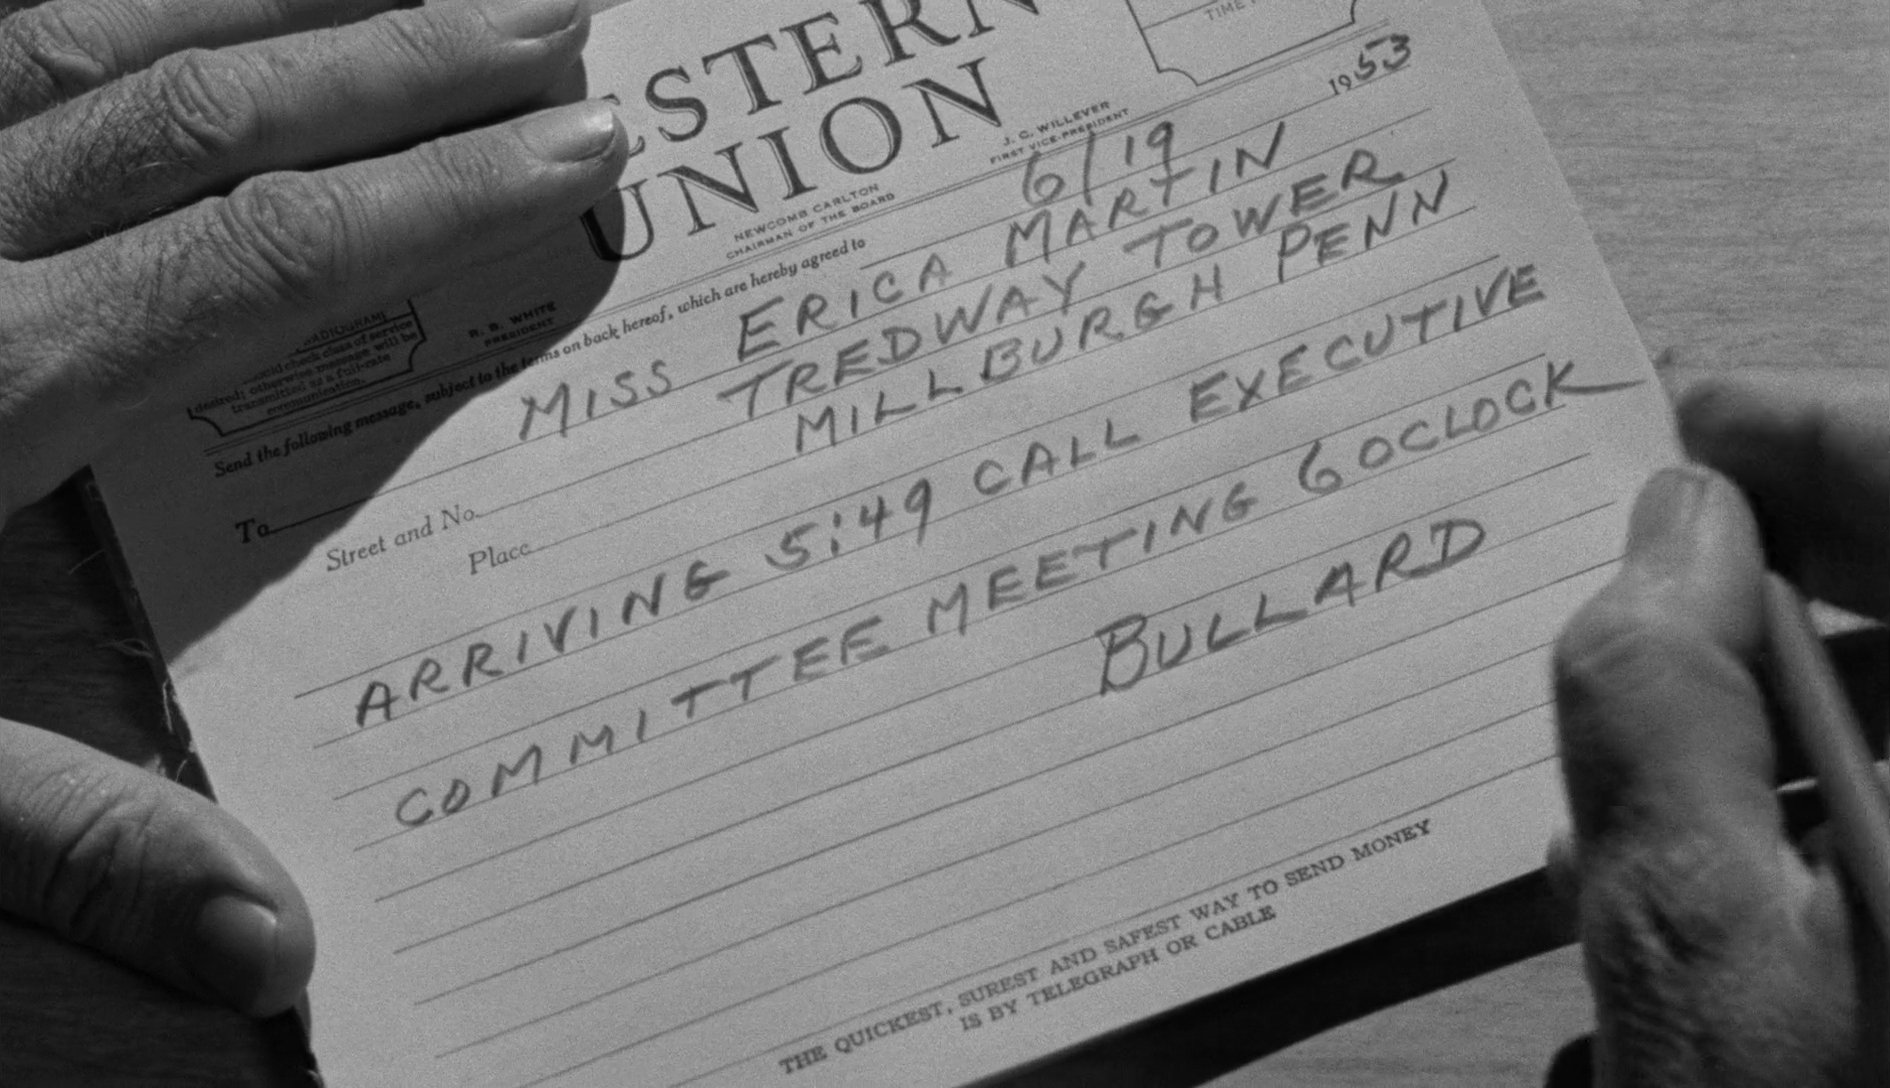 ESTERN
UNION
TIME
1953
J. C. WILLEVER
FIRST VICE-PRESIDENT
NEWCOMB CARLTON
CHAIRMAN OF THE BOARD
R. B. WHITE
PRESIDENT
RADIOGRAM
each class of service
desired; otherwise message will be
transmitted as a full-rate
communication.
6/19
Send the following message, subject to the terms on back hereof, which are hereby agreed to
To MISS ERICA MARTIN
Street and No. TREDWAY TOWER
Place MILLBURGH PENN
ARRIVING 5:49 CALL EXECUTIVE
COMMITTEE MEETING 6 OCLOCK
BULLARD
THE QUICKEST, SUREST AND SAFEST WAY TO SEND MONEY
IS BY TELEGRAPH OR CABLE